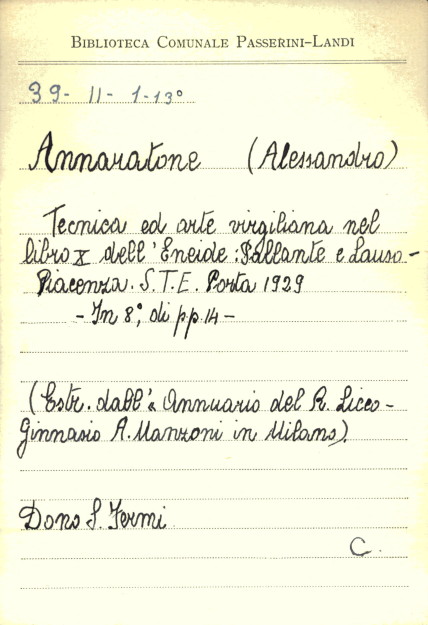 BIBLIOTECA COMUNALE PASSERINI-LANDI
39- II- 1-13°
Annaratone (Alessandro)
Tecnica ed arte virgiliana nel
libro X dell'Eneide: Pallante e Lauso-
Piacenza. S.T.E. Porta 1929
- In 8°, di pp. 14 -
(Estr. dall'« Annuario del R. Liceo-
Ginnasio A. Manzoni in Milano).
Dono S. Fermi
C.